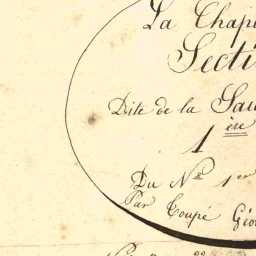 La Chap
Secti
Dite de la Sau
1ère
Du Nº 1er
Par Coupé Géo